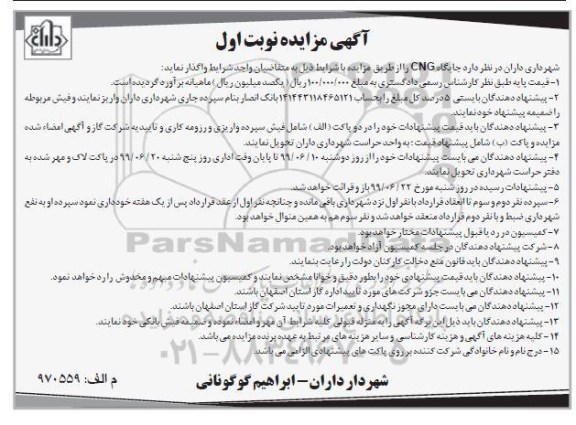 آگهی مزایده نوبت اول
شهرداری داران در نظر دارد جایگاه CNG را از طریق مزایده با شرایط ذیل به متقاضیان واجد شرایط واگذار نماید:
۱- قیمت پایه طبق نظر کارشناس رسمی دادگستری به مبلغ ۱۰۰/۰۰۰/۰۰۰ ریال ( یکصد میلیون ریال ) ماهیانه برآورد گردیده است.
۲- پیشنهاد دهندگان بایستی ۵ درصد کل مبلغ را بحساب ۱۴۱۴۴۲۱۱۸۴۶۵۱۲۱ بانک انصار بنام سپرده جاری شهرداری داران واریز نمایند و فیش مربوطه
را ضمیمه پیشنهاد خود نمایند.
۳- پیشنهاد دهندگان باید قیمت پیشنهادات خود را در دو پاکت ( الف ) شامل فیش سپرده واریزی و رزومه کاری و تاییدیه شرکت گاز و آگهی امضاء شده
مزایده و پاکت ( ب ) شامل پیشنهاد قیمت ؛ به واحد حراست شهرداری داران تحویل نمایند.
۴- پیشنهاد دهندگان می بایست پیشنهادات خود را از روز دوشنبه ۹۹/۰۶/۱۰ تا پایان وقت اداری روز پنج شنبه ۹۹/۰۶/۲۰ در پاکت لاک و مهر شده به
دفتر حراست شهرداری تحویل نمایند.
۵- پیشنهادات رسیده در روز شنبه مورخ ۹۹/۰۶/۲۲ باز و قرائت خواهد شد.
۶- سپرده نفر دوم و سوم تا انعقاد قرارداد با نفر اول نزد شهرداری باقی مانده و چنانچه نفر اول از عقد قرارداد پس از یک هفته خودداری نمود سپرده او به نفع
شهرداری ضبط و با نفر دوم قرارداد منعقد خواهد شد و نفر سوم هم به همین منوال خواهد بود.
۷- کمیسیون در رد یا قبول پیشنهادات مختار خواهد بود.
۸- شرکت پیشنهاد دهندگان در جلسه کمیسیون آزاد خواهد بود.
۹- پیشنهاد دهندگان باید قانون منع دخالت کارکنان دولت را رعایت بنمایند.
۱۰- پیشنهاد دهندگان باید قیمت پیشنهادی خود را بطور دقیق و خوانا مشخص نمایند و کمیسیون پیشنهادات مبهم و مخدوش را رد خواهد نمود.
۱۱- پیشنهاد دهندگان می بایست جزو شرکت های مورد تایید اداره گاز استان اصفهان باشند.
۱۲- پیشنهاد دهندگان می بایست دارای مجوز نگهداری و تعمیرات مورد تایید شرکت گاز استان اصفهان باشند.
۱۳- پیشنهاد دهندگان باید ذیل این برگه آگهی را به منزله قبولی کلیه شرایط آن مهر و امضاء نموده و ضمیمه فیش بانکی خود نمایند.
۱۴- کلیه هزینه های آگهی و هزینه کارشناسی و سایر هزینه های مرتبط به عهده برنده مزایده می باشد.
۱۵- درج نام و نام خانوادگی شرکت کننده بر روی پاکت های پیشنهادی الزامی می باشد.
شهردار داران - ابراهیم گوگونانی
م الف: ۹۷۰۵۵۹
ParsNamad
۰۲۱-۸۸۳۴۹۶۷۰-۵